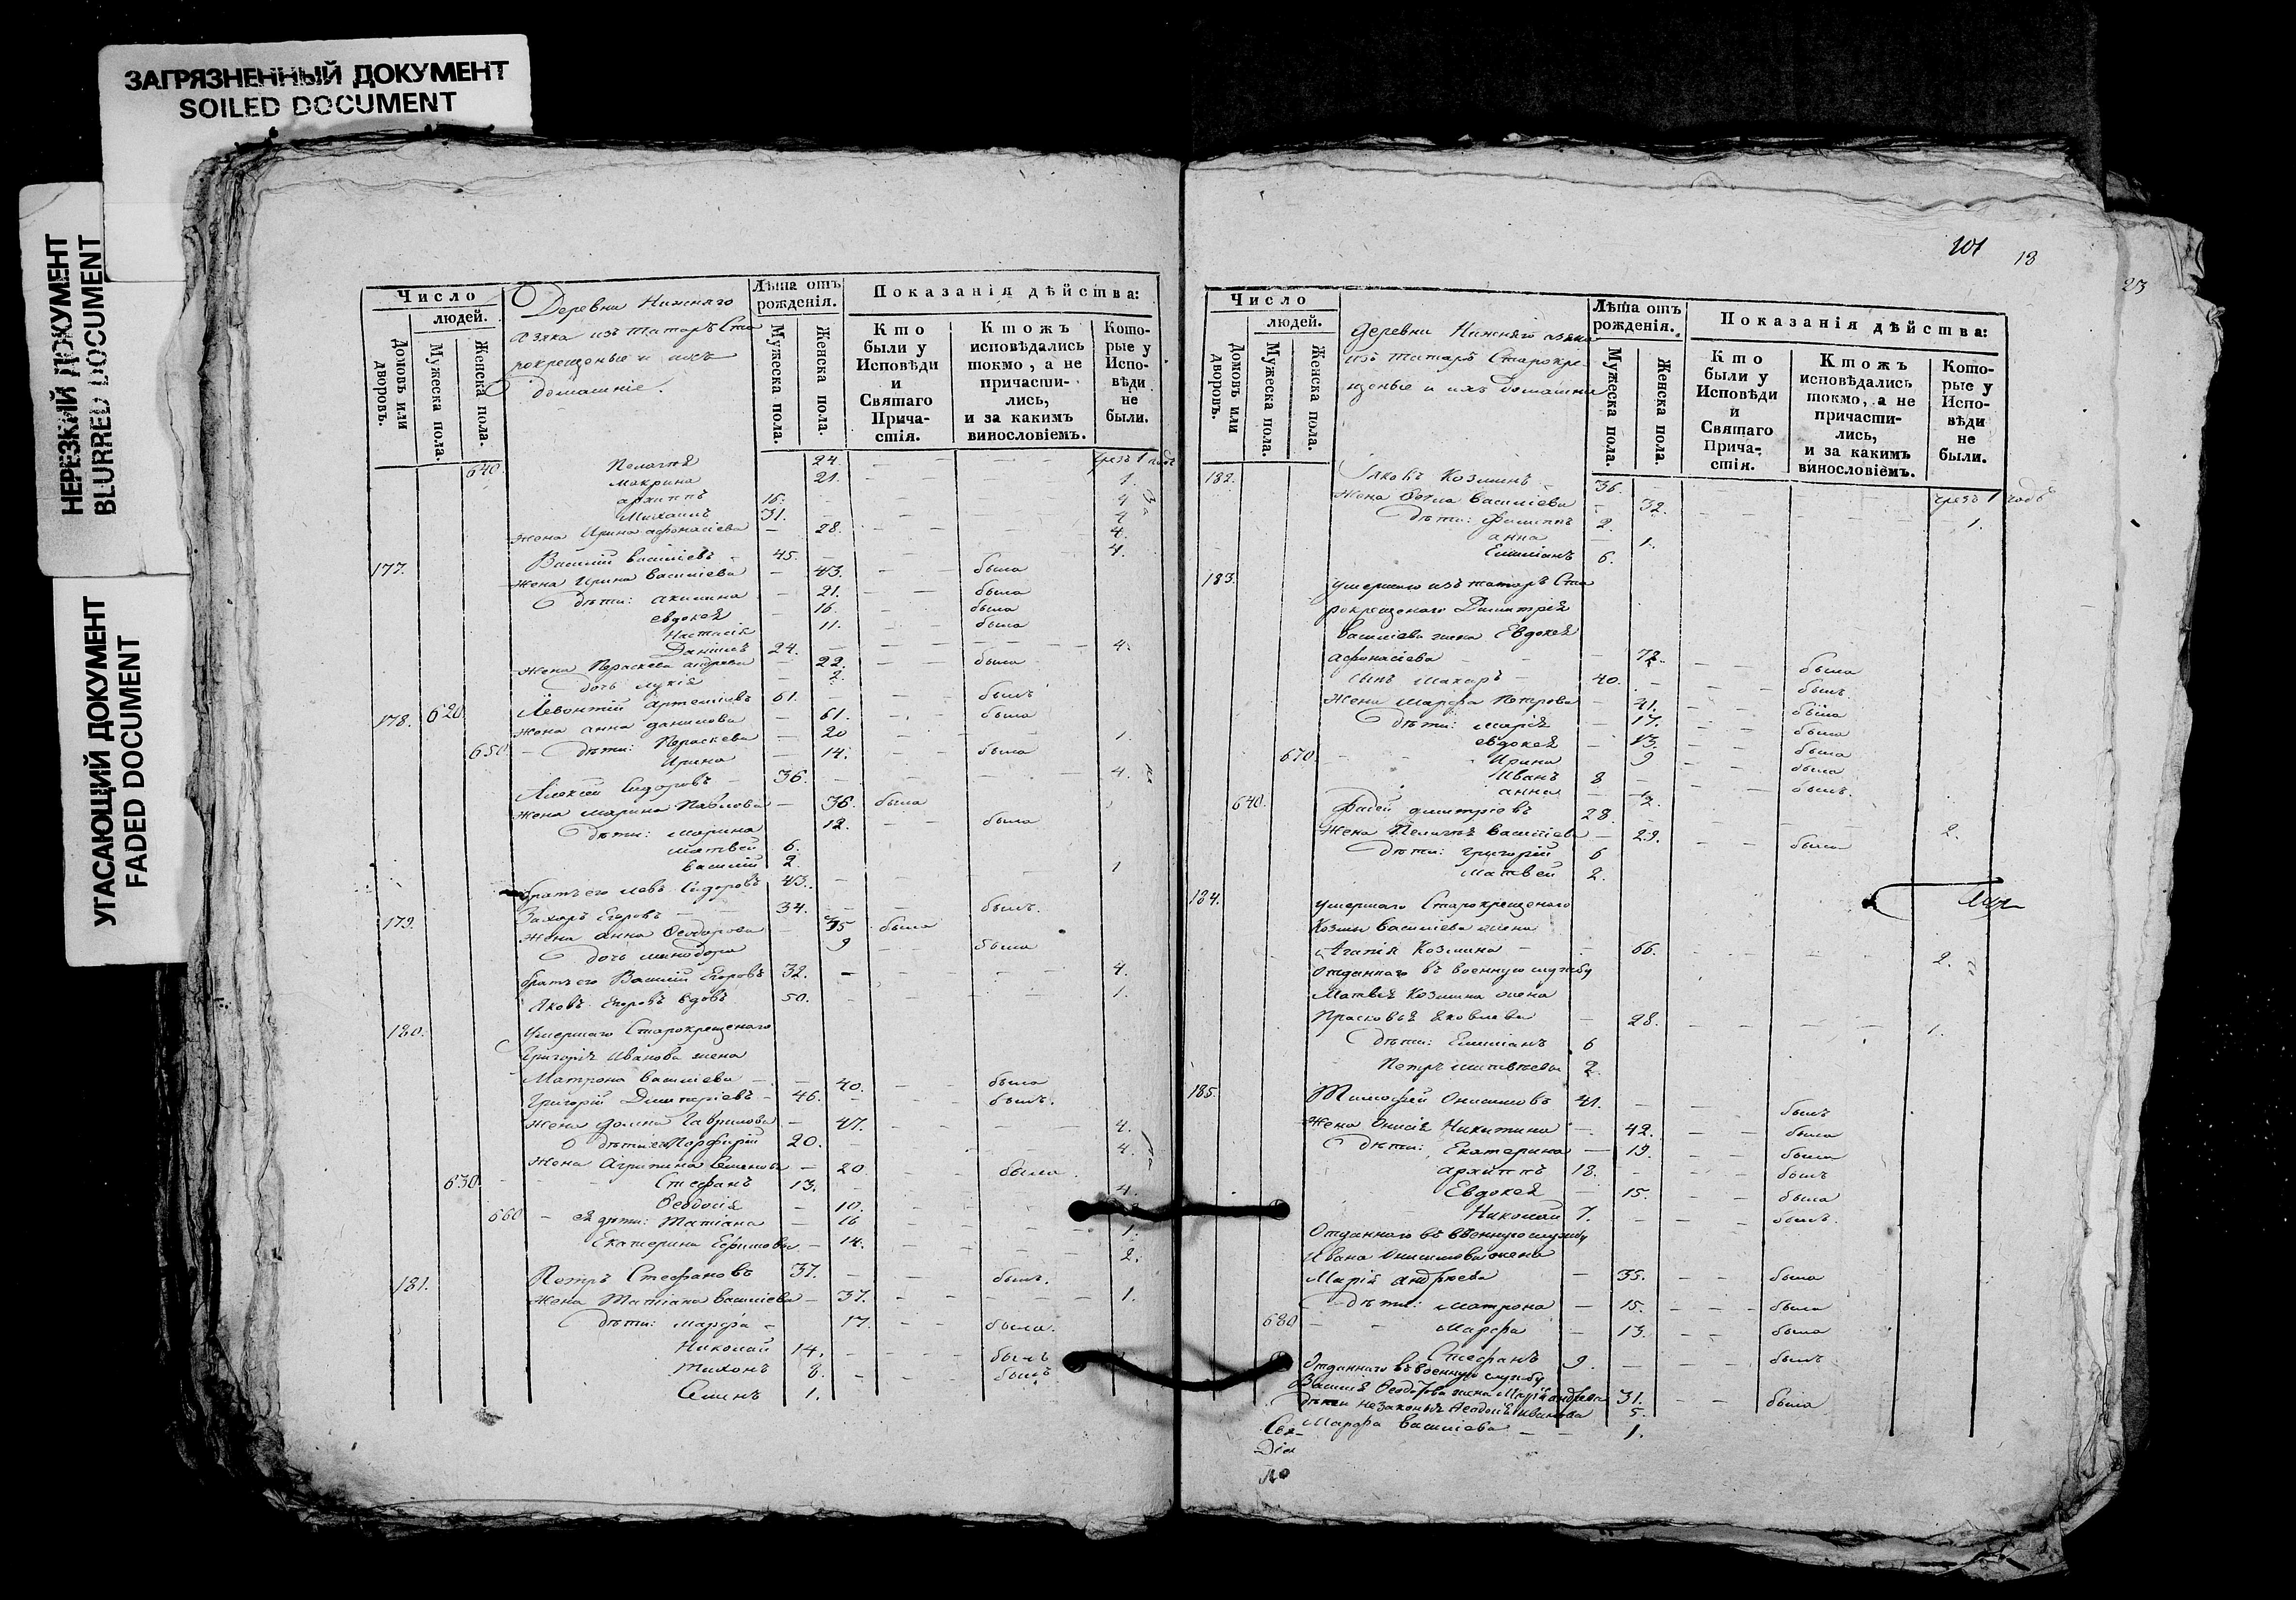 ЗАГРЯЗНЕННЫЙ ДОКУМЕНТ
SOILED DOCUMENT
НЕРЕЗКИЙ ДОКУМЕНТ
BLURRED DOCUMENT
УГАСАЮЩИЙ ДОКУМЕНТ
FADED DOCUMENT
Число
людей.
Домовъ или дворовъ.
Мужеска пола.
Женска пола.
Деревни Нижняго
Азяка изъ татаръ Ста
рокрещеные и ихъ
домашніе.
Лѣта отъ рожденія.
Мужеска пола.
Женска пола.
Показанія дѣйства:
Кто были у Исповѣди и Святаго Прича-стія.
Ктожъ исповѣдались токмо, а не причасти-лись, и за какимъ винословіемъ.
Кото-рые у Испо-вѣди не были.
640. Пелагѣя 24. чрезъ 1 годъ
Макрина 21. 1.
архиппъ 16. 4
Михаилъ 31. 4
жена Ирина афонасіева 28. 4.
177. Василій Василіевъ 45. 4.
жена Ирина Василіева 43. была
дѣти: акилина 21. была
евдокея 16. была
Настасія 11. была
Даніилъ 24. 4.
жена Параскева андреева 22. была
дочь Лукія 2.
178. 620 Левонтій Артеміевъ 61. былъ
жена анна данилова 61. была
650 дѣти: Параскева 20 1.
Ирина 14. была
Алексѣй Сидоровъ 36. 4.
жена Марина Павлова 36. была
дѣти: Марина 12. была
матвей 6.
василій 2.
братъ его Левъ Сидоровъ 43. 1
179. Захаръ Егоровъ 34. былъ.
жена анна Ѳеодорова 35 была
дочь минодора 9 была
братъ его Василій Егоровъ 32. 4.
Яковъ Егоровъ вдовъ 50. 1.
180. Умершаго Старокрещенаго
Григорія Иванова жена
Матрона василіева 40. была
Григорій Димитріевъ 46. былъ.
жена Гаврилова 47. 4.
дѣти: Порфирій 20. 4.
жена Агрипина Семенова 20. была
630. Стефанъ 13. 4.
Ѳеодосія 10.
660 ея дѣти: Татіана 16 1.
Екатерина Ефимовы 14. 2.
181. Петръ Стефановъ 37. былъ.
жена Татіана Василіева 37. 1.
дѣти: марфа 17. была.
Николай 14. былъ
тихонъ 8. былъ
Семенъ 1.
101 18
23
Число
людей.
Домовъ или дворовъ.
Мужеска пола.
Женска пола.
Деревни Нижняго азяка
изъ татаръ Старокре-
щеные и ихъ домашніе
Лѣта отъ рожденія.
Мужеска пола.
Женска пола.
Показанія дѣйства:
Кто были у Исповѣди и Святаго Прича-стія.
Ктожъ исповѣдались токмо, а не причасти-лись, и за какимъ винословіемъ.
Кото-рые у Испо-вѣди не были.
182. Яковъ Козминъ 36. чрезъ 1 годъ
жена Ѳекла василіева 32. 1.
дѣти: Филиппъ 2.
анна 1.
Емиліанъ 6.
183. умершаго изъ татаръ Ста
рокрещенаго Димитрія
Василіева жена Евдокея
афонасіева 72. была
сынъ Макаръ 40. былъ.
Жена Марфа Петрова 41. была
дѣти: марія 17. была
евдокея 13. была
670 Ирина 9 была
Иванъ 8 былъ.
анна 2.
640. Фадей димитріевъ 28. 2.
жена Пелагѣя василіева 29. была
дѣти: григорій 6
матвей 2.
184. умершаго Старокрещенаго
Козмы василіева жена
Агапія Козмина 66. 2.
отданнаго въ военную службу
Матвея Козмина жена
Прасковья Яковлева 28. 1.
дѣти: Емиліанъ 6
Петръ матвѣевы 2.
185. Тимофей Онисимовъ 41. былъ
жена Анисія Никитина 42. была
дѣти: Екатерина 19. была
архиппъ 18. былъ
Евдокея 15. была
Николай 7. былъ.
отданнаго въ военную службу
Ивана Онисимова жена
Марія андреева 35. была
дѣти: матрона 15. была
680 Марфа 13. была
Стефанъ 9. былъ
отданнаго въ военную службу
Василія Ѳеодорова жена Марія андреева 31. была
Ѳеодосія Иванова 5.
Марфа василіева 1.
Діа